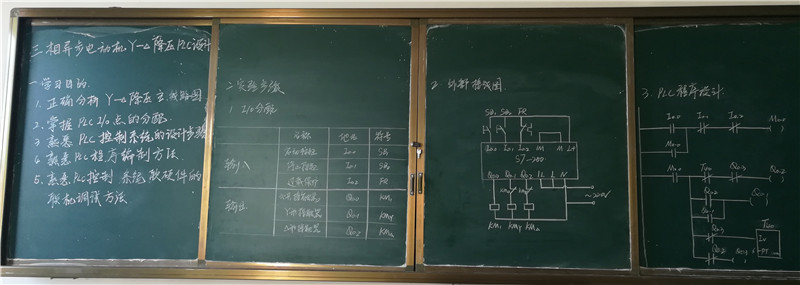 三相异步电动机Y-△降压PLC设计
一.学习目的.
1. 正确分析Y-△降压主线路图
2. 掌握PLC I/O点的分配.
3. 熟悉PLC控制系统的设计步骤
4. 熟悉PLC程序编制方法.
5. 熟悉PLC控制系统软硬件的
联机调试方法
二 实验步骤
1. I/O分配
名称 地址 符号
输入 启动按钮 I0.1 SB1
停止按钮 I0.0 SB2
过载保护 I0.2 FR
输出 公共接触器 Q0.0 KM1
Y形接触器 Q0.1 KMY
△形接触器 Q0.2 KM△
2. 外部接线图.
SB1 SB2 FR
I0.0 I0.1 I0.2 1M M L+
S7-200
Q0.0 Q0.1 Q0.2 1L L N
~220V
KM1 KMY KM△
3. PLC程序设计.
I0.0 I0.1 I0.2 M0.0
M0.0
M0.0 Q0.2
Q0.2
Q0.1
Q0.2
IN
PT